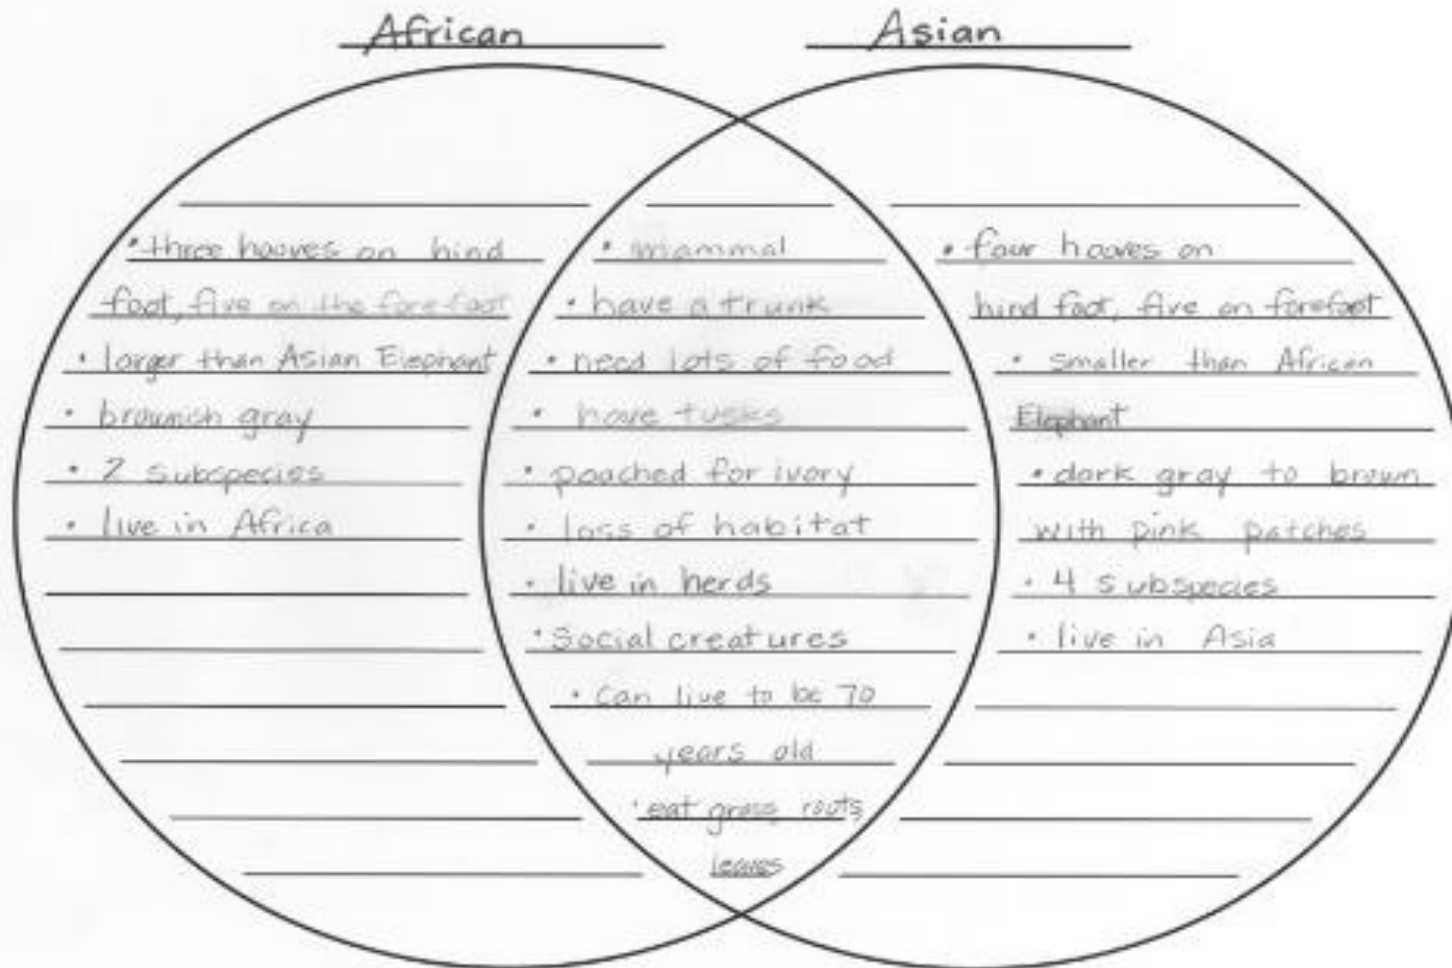 African
Asian
• three hooves on hind
foot, five on the forefoot
• larger than Asian Elephant
• brownish gray
• 2 subspecies
• live in Africa
• mammal
• have a trunk
• need lots of food
• have tusks
• poached for ivory
• loss of habitat
• live in herds
• Social creatures
• Can live to be 70
years old
• eat grass roots
leaves
• four hooves on
hind foot, five on forefoot
• smaller than African
Elephant
• dark gray to brown
with pink patches
• 4 subspecies
• live in Asia